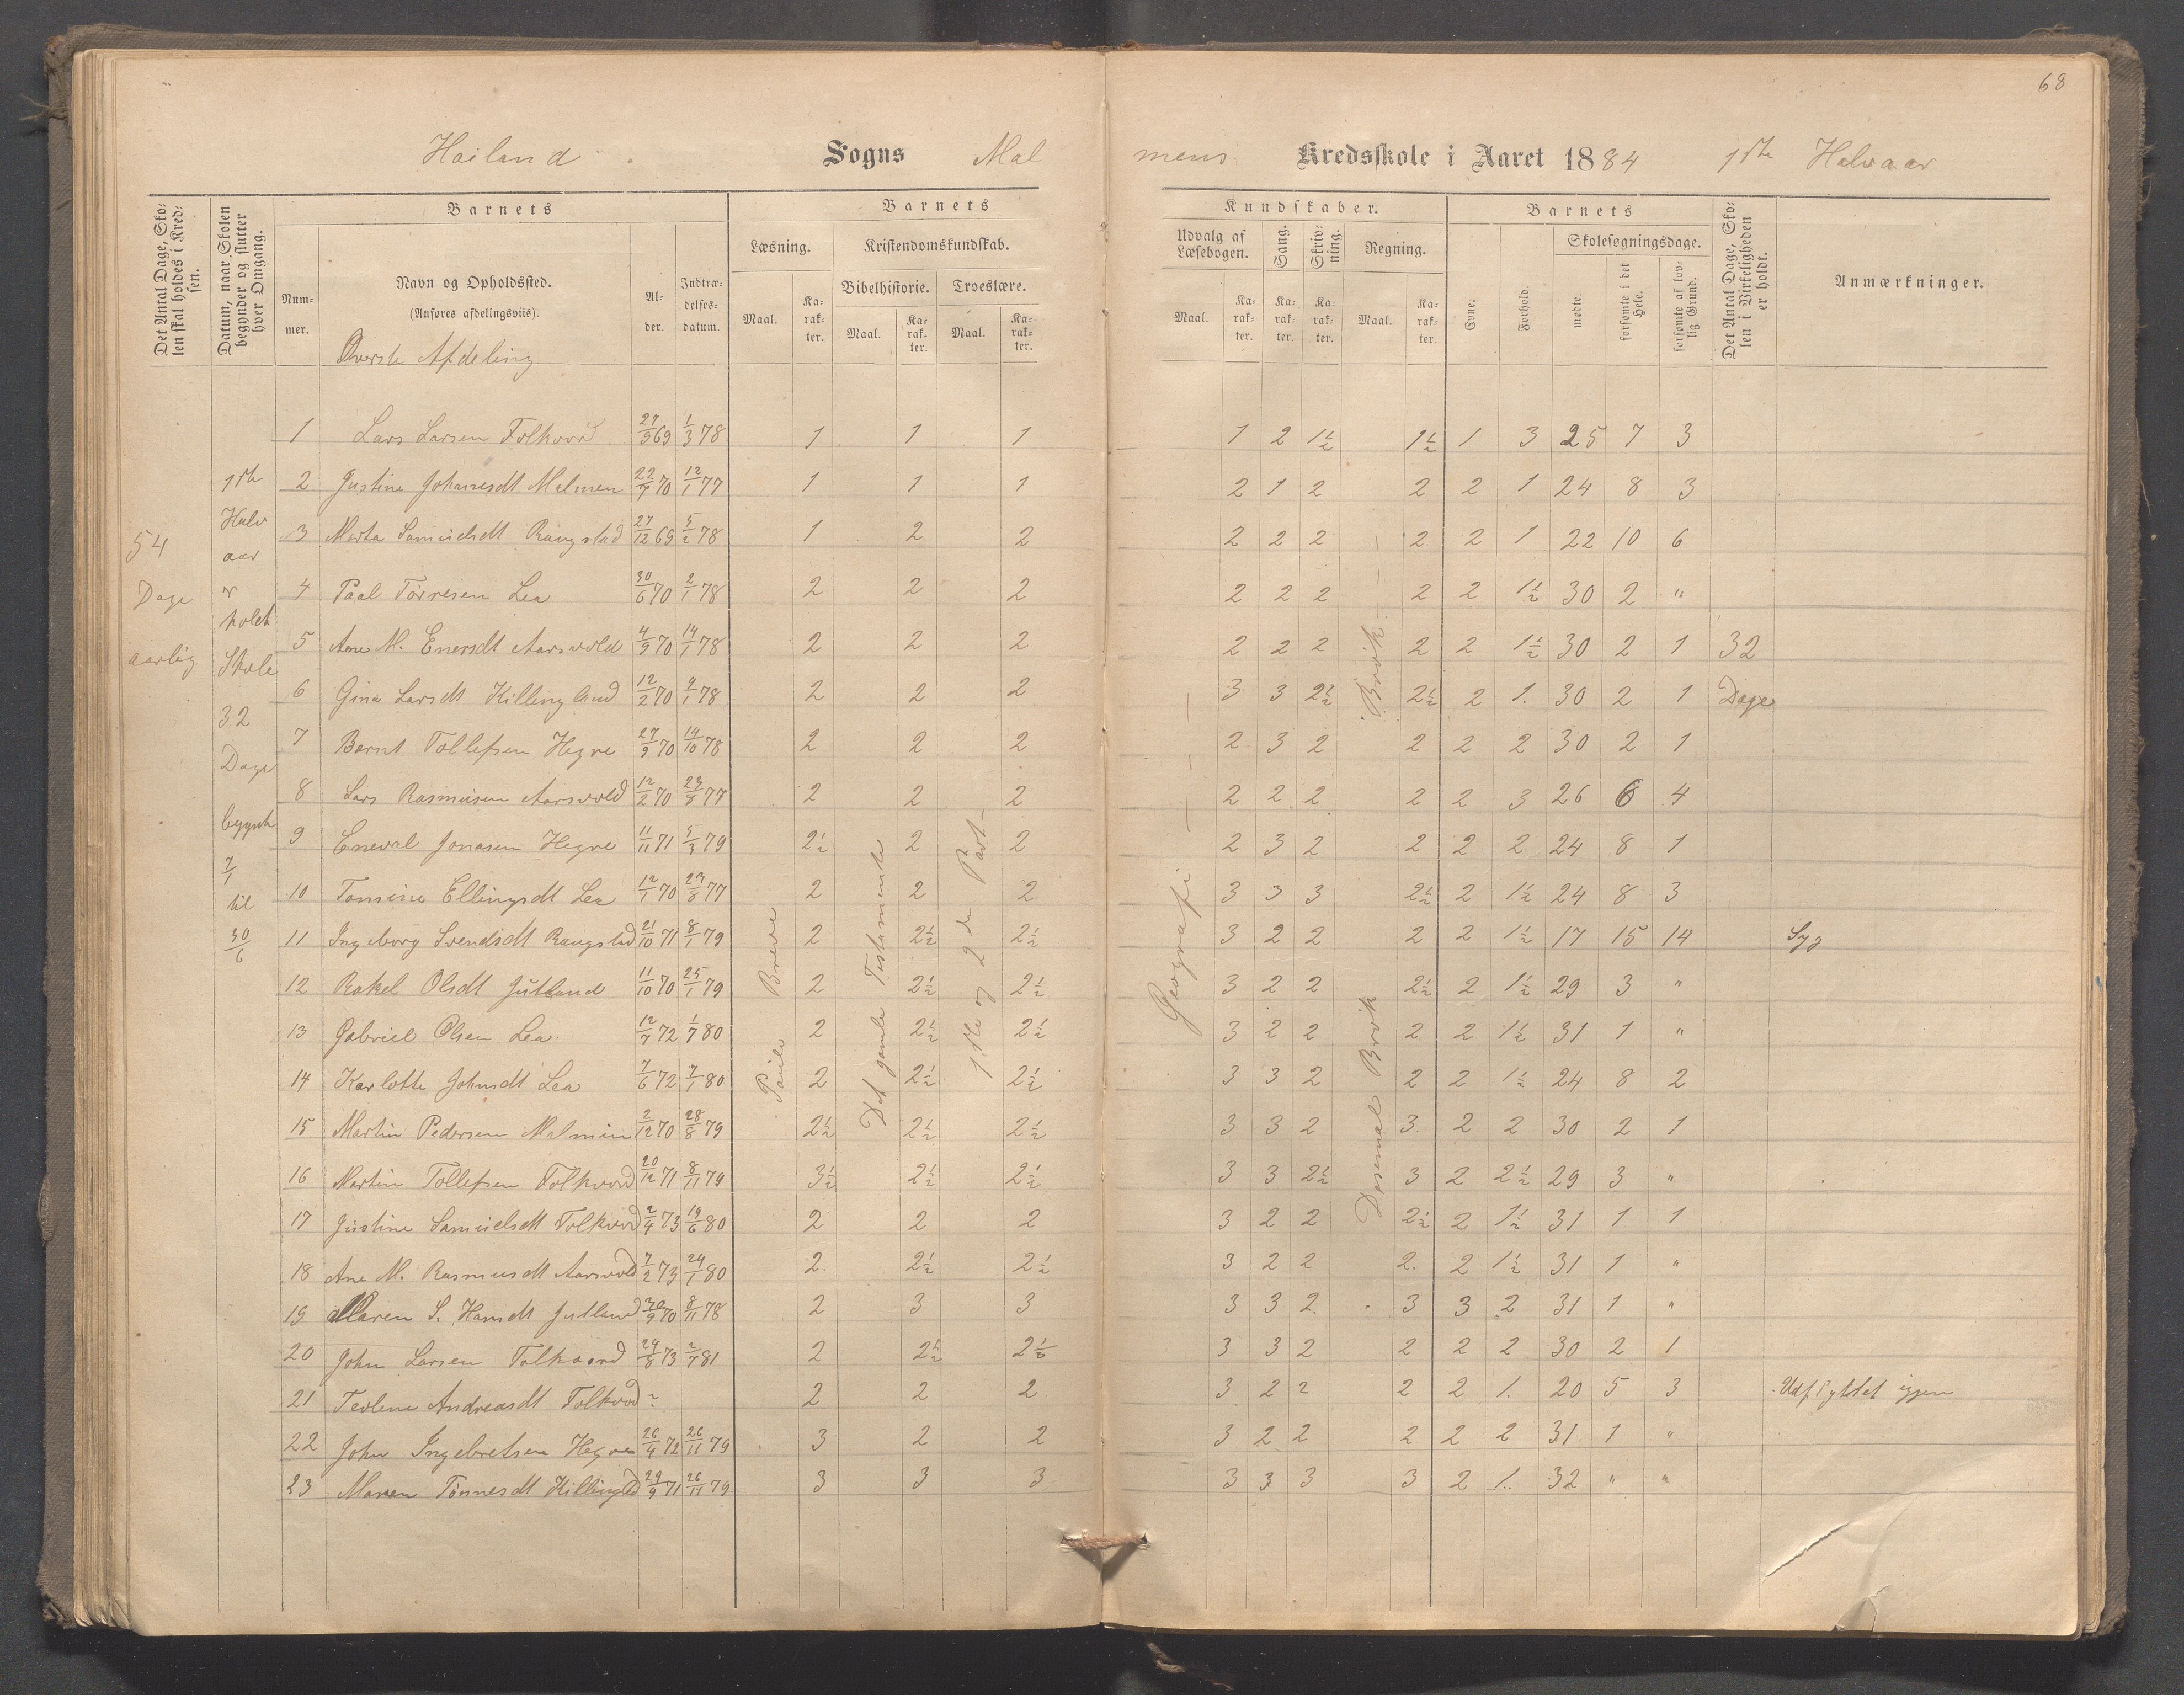 68
Høiland Sogns Mal mens Kredsskole i Aaret 1884 1ste Halvaar
Det Antal Dage, Skolen skal holdes i Kredsen.
Datum, naar Skolen begynder og slutter hver Omgang.
Barnets
Nummer.
Navn og Opholdssted.
(Anføres afdelingsviis).
Øverste Afdeling
Alder.
Indtrædelsesdatum.
Barnets
Læsning.
Maal.
Karakter.
Kristendomskundskab.
Bibelhistorie.
Maal.
Karakter.
Troeslære.
Maal.
Karakter.
Kundskaber.
Udvalg af Læsebogen.
Maal.
Karakter.
Sang.
Karakter.
Skrivning.
Karakter.
Regning.
Maal.
Karakter.
Barnets
Evne.
Forhold.
Skolesøgningsdage.
mødte.
forsømte i det Hele.
forsømte af lovlig Grund.
Det Antal Dage, Skolen i Virkeligheden er holdt.
Anmærkninger.
54 Dage aarlig
1ste Halv aar er holdt Skole 32 Dage begynt 7/1 til 30/6
Paile Breve
Det gamle Testamente
1ste og 2den Part
Geografi
Desemal Brøk
Brøk
32 Dage
1 Lars Larsen Folkvord 27/9 69 1/3 78 1 1 1 1 2 1½ 1½ 1 3 25 7 3
2 Justine Johanesdt Malmen 22/7 70 12/1 77 1 1 1 2 1 2 2 2 1 24 8 3
3 Marta Samuelsdt Raugstad 27/12 69 5/2 78 1 2 2 2 2 2 2 2 1 22 10 6
4 Paal Tørresen Lea 30/6 70 2/1 78 2 2 2 2 2 2 2 2 1½ 30 2 "
5 Ane M. Enersdt Aarsvold 4/9 70 14/1 78 2 2 2 2 2 2 2 2 1½ 30 2 1
6 Gina Larsdt Killingland 12/2 70 9/1 78 2 2 2 3 3 2½ 2½ 2 1. 30 2 1
7 Bernt Tollefsen Hegre 27/9 70 14/10 78 2 2 2 2 3 2 2 2 2 30 2 1
8 Lars Rasmusen Aarsvold 12/2 70 23/8 77 2 2 2 2 2 2 2 2 3 26 6 4
9 Enevel Jonasen Hegre 11/11 71 5/3 79 2½ 2 2 2 3 2 2 2 2 24 8 1
10 Tomine Ellingsdt Lea 12/1 70 23/8 77 2 2 2 3 3 3 2½ 2 1½ 24 8 3
11 Ingeborg Svendsdt Raugstad 21/10 71 8/1 79 2 2½ 2½ 3 2 2 2 2 1½ 17 15 14 Syg
12 Rakel Olsdt Jutland 11/10 70 25/1 79 2 2½ 2½ 3 2 2 2½ 2 1½ 29 3 "
13 Gabriel Olsen Lea 12/7 72 1/7 80 2 2½ 2½ 3 2 2 2 2 1½ 31 1 "
14 Karlotte Johnsdt Lea 7/6 72 7/1 80 2 2½ 2½ 3 3 2 2 2 1½ 24 8 2
15 Martin Pedersen Malmin 2/12 70 28/8 79 2½ 2½ 2½ 3 3 2 3. 2 2 30 2 1
16 Martin Tollefsen Folkvord 20/12 71 8/11 79 3½ 2½ 2½ 3 3 2½ 3 2 2½ 29 3 "
17 Justine Samuelsdt Folkvord 2/4 73 19/6 80 2 2 2 3 2 2 2½ 2 1½ 31 1 1
18 Ane M. Rasmusdt Aarsvold 7/2 73 24/1 80 2. 2½ 2½ 3 2 2 2. 2 1½ 31 1 "
19 Maren S. Hansdt Jutland 30/9 70 8/11 78 2 3 3 3 3 2. 3 3 2 31 1 "
20 John Larsen Folkvord 24/8 73 2/7 81 2 2½ 2½ 3 3 2 2 2 2 30 2 1
21 Teoline Andreasdt Folkvord ? 2 2 2 3 2 2 2 2 1. 20 5 3 Udflyttet igjen
22 John Ingebretsen Hegre 26/4 72 26/11 79 3 2 2 3 2 2 2 2 2 31 1 "
23 Maren Tønnesdt Killingld 29/9 71 26/11 79 3 3 3 3 3 3 3 2 1. 32 " "